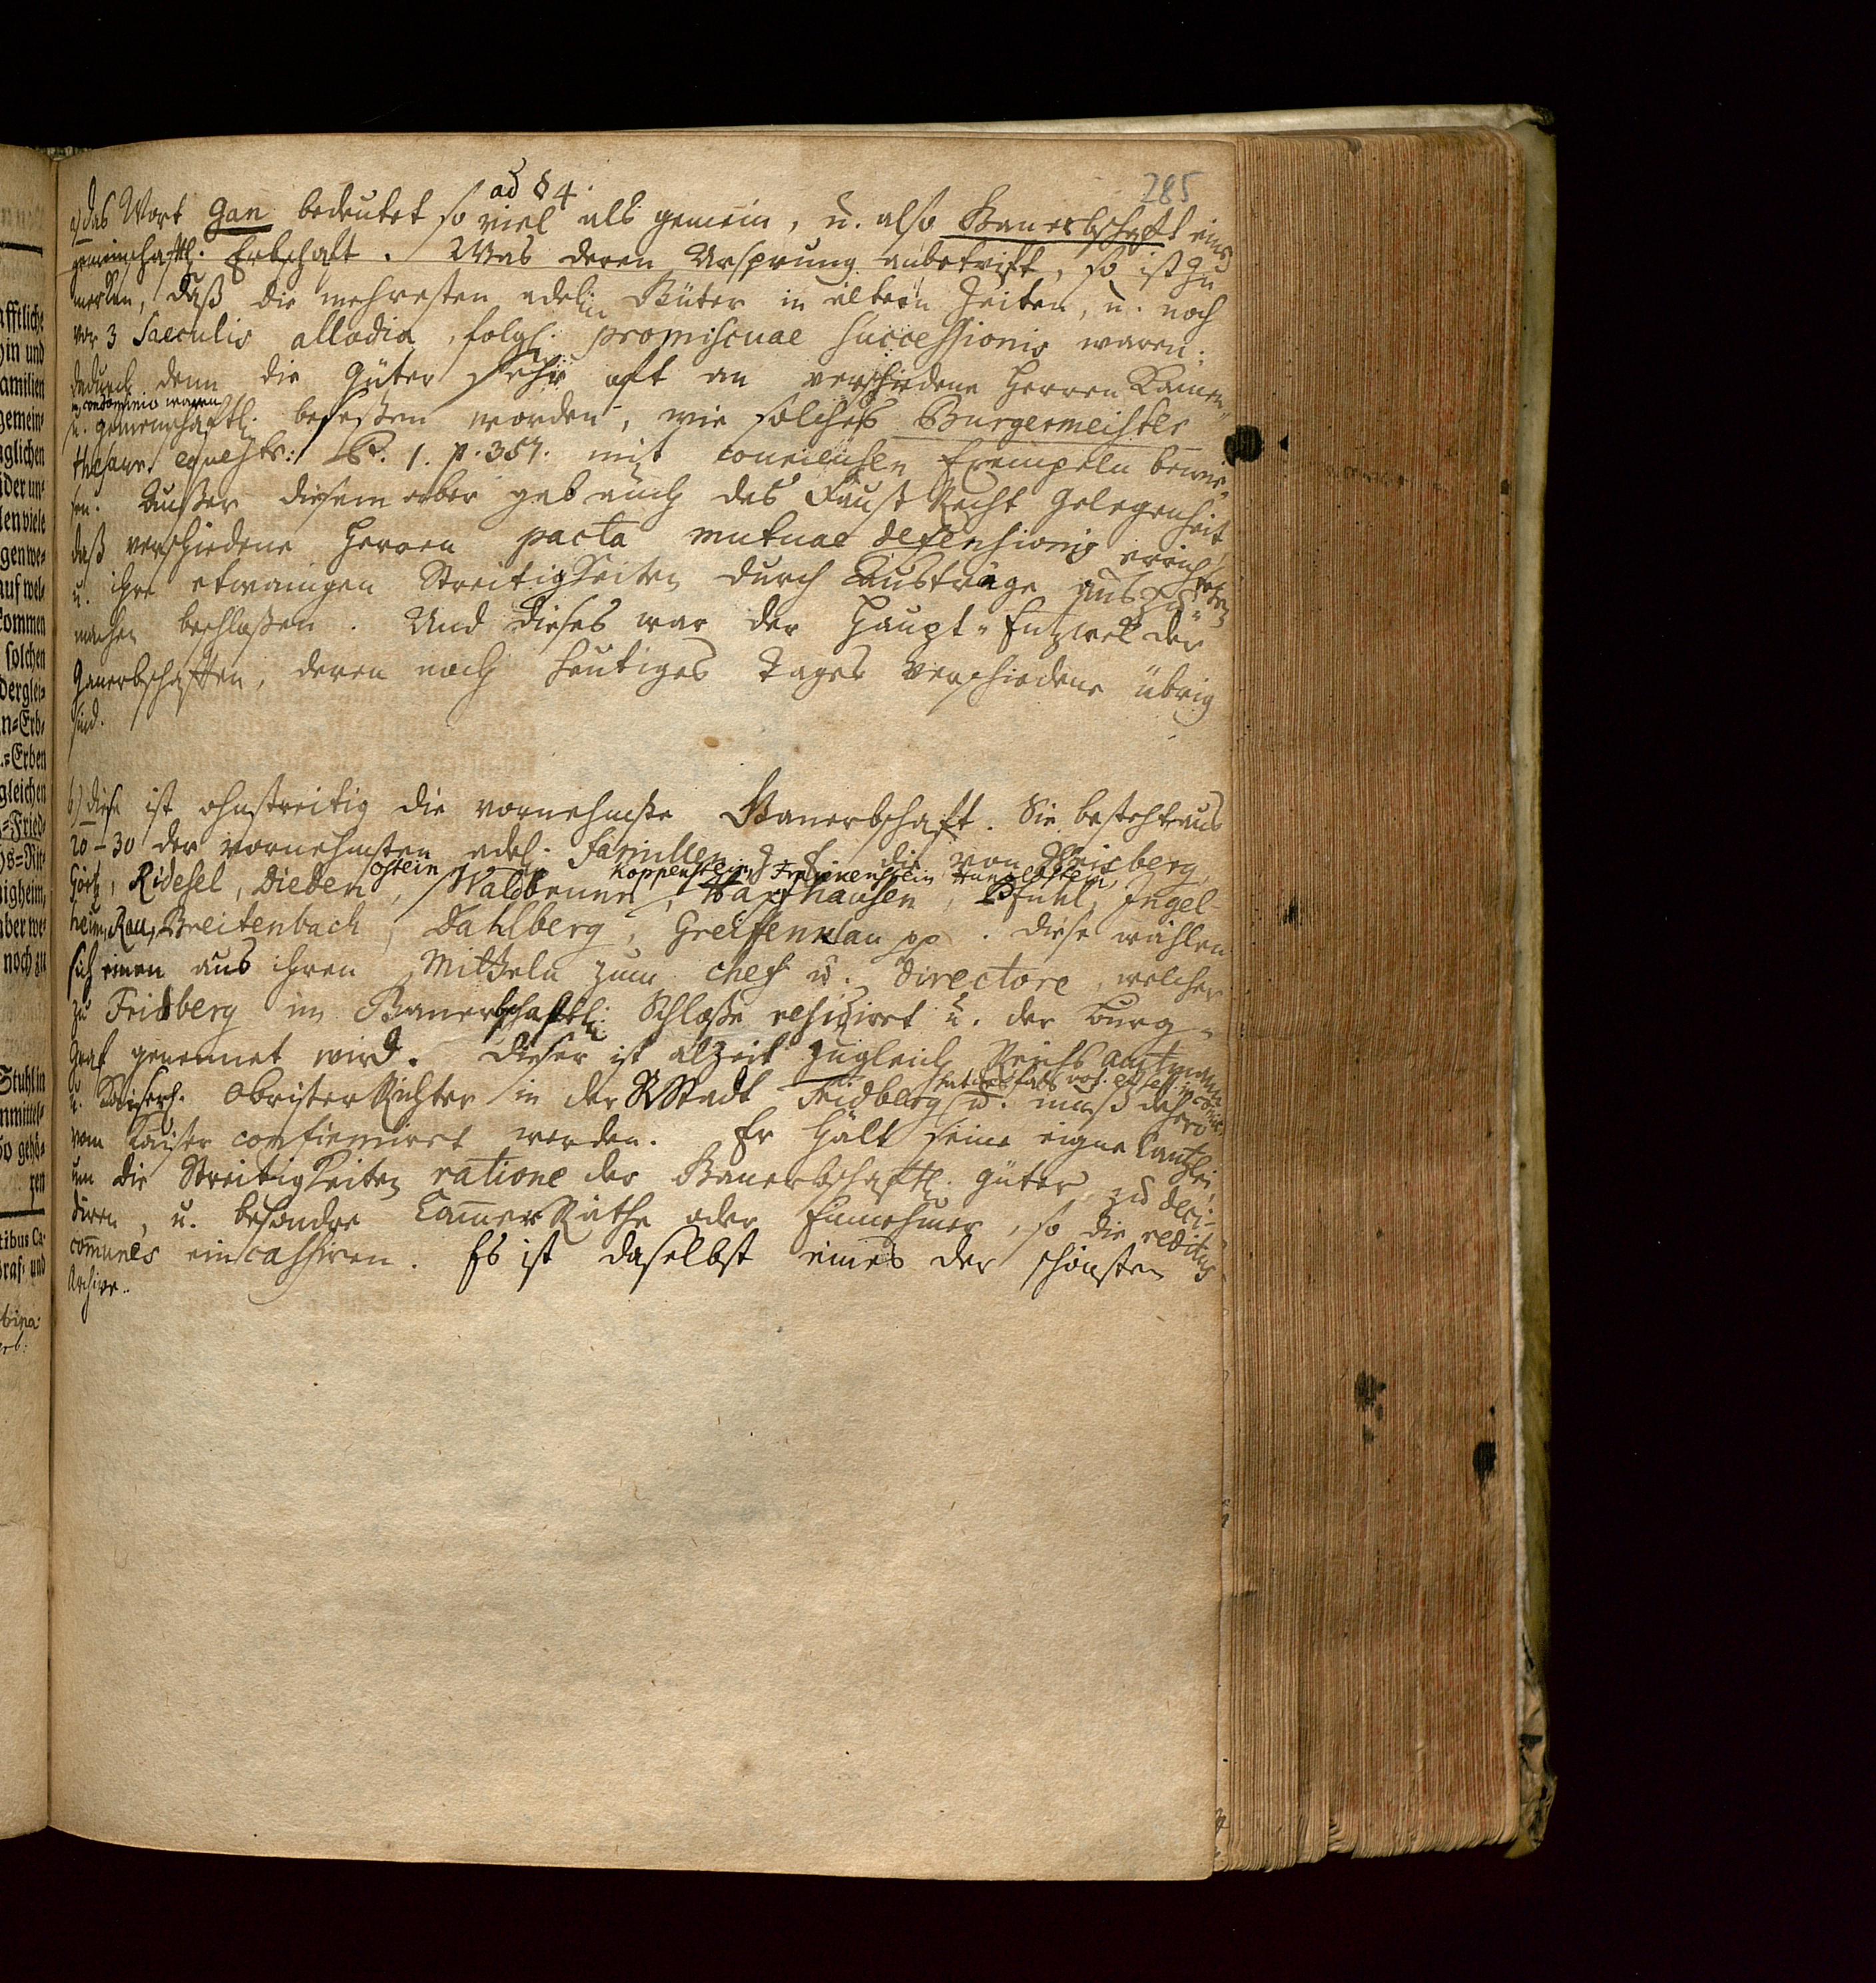 285
ad § 4.
a) Das Wort Gan bedeutet so viel als gemein, u. also Ganerbschaft eine
gemeinschaftl. Erbschaft. Was deren Ursprung anbetrift, so ist zu
merken, daß die mehresten adeln Güter in ältern Zeiten, u. noch
vor 3 Saeculis allodia, folgl. promiscuae successionis waren:
dadurch denn die Güter sehr oft an verschiedene Herren kamen
in condominio waren
u. gemeinschaftl. beseßen worden, wie solches Burgermeister
thesaur. equestr: P. 1. p. 357. mit Exempeln bewie-
sen. Außer diesem aber gab auch das Faust Recht Gelegenheit,
daß verschiedene Herren pacta mutuae defensionis errichteten
u. ihre etwanigen Streitigkeiten durch Austräge auszu-
machen beschloßen. Und dieses war der Haupt-Entzwek der
Ganerbschaften, deren noch heutiges Tages verschiedene übrig
sind.
b) Diese ist ohnstreitig die vornehmste Ganerbschaft. Sie besteht aus
20–30 der vornehmsten adel. Familien z. E. die von Wrisberg,
Ostein Koppenstein, Frankenstein
Görtz, Ridesel, Dieden, Waldbrunn, Haxthausen, Pfuhl, Ingel-
heim, Rau, Breitenbach, Dahlberg, Greiffenklau pp. Diese wählen
sich einen aus ihren Mitteln zum chef u. Directore, welcher
zu Fridberg im Ganerbschaftl. Schloße residiret u. der Burg-
Graf genennet wird. Dieser ist alzeit zugleich Reichs Amtmann
u. Kayserl. Obrister Richter in der RStadt Fridberg u. muß dahero
vom Kaiser confirmiret werden. Er hält seine eigne Cantzlei,
um die Streitigkeiten ratione der Ganerbschaftl. Güter zu deci-
diren, u. besondre Cammer Räthe oder Einnehmer, so die reditus
communes eincassiren. Es ist daselbst eines der schönsten
Archive.